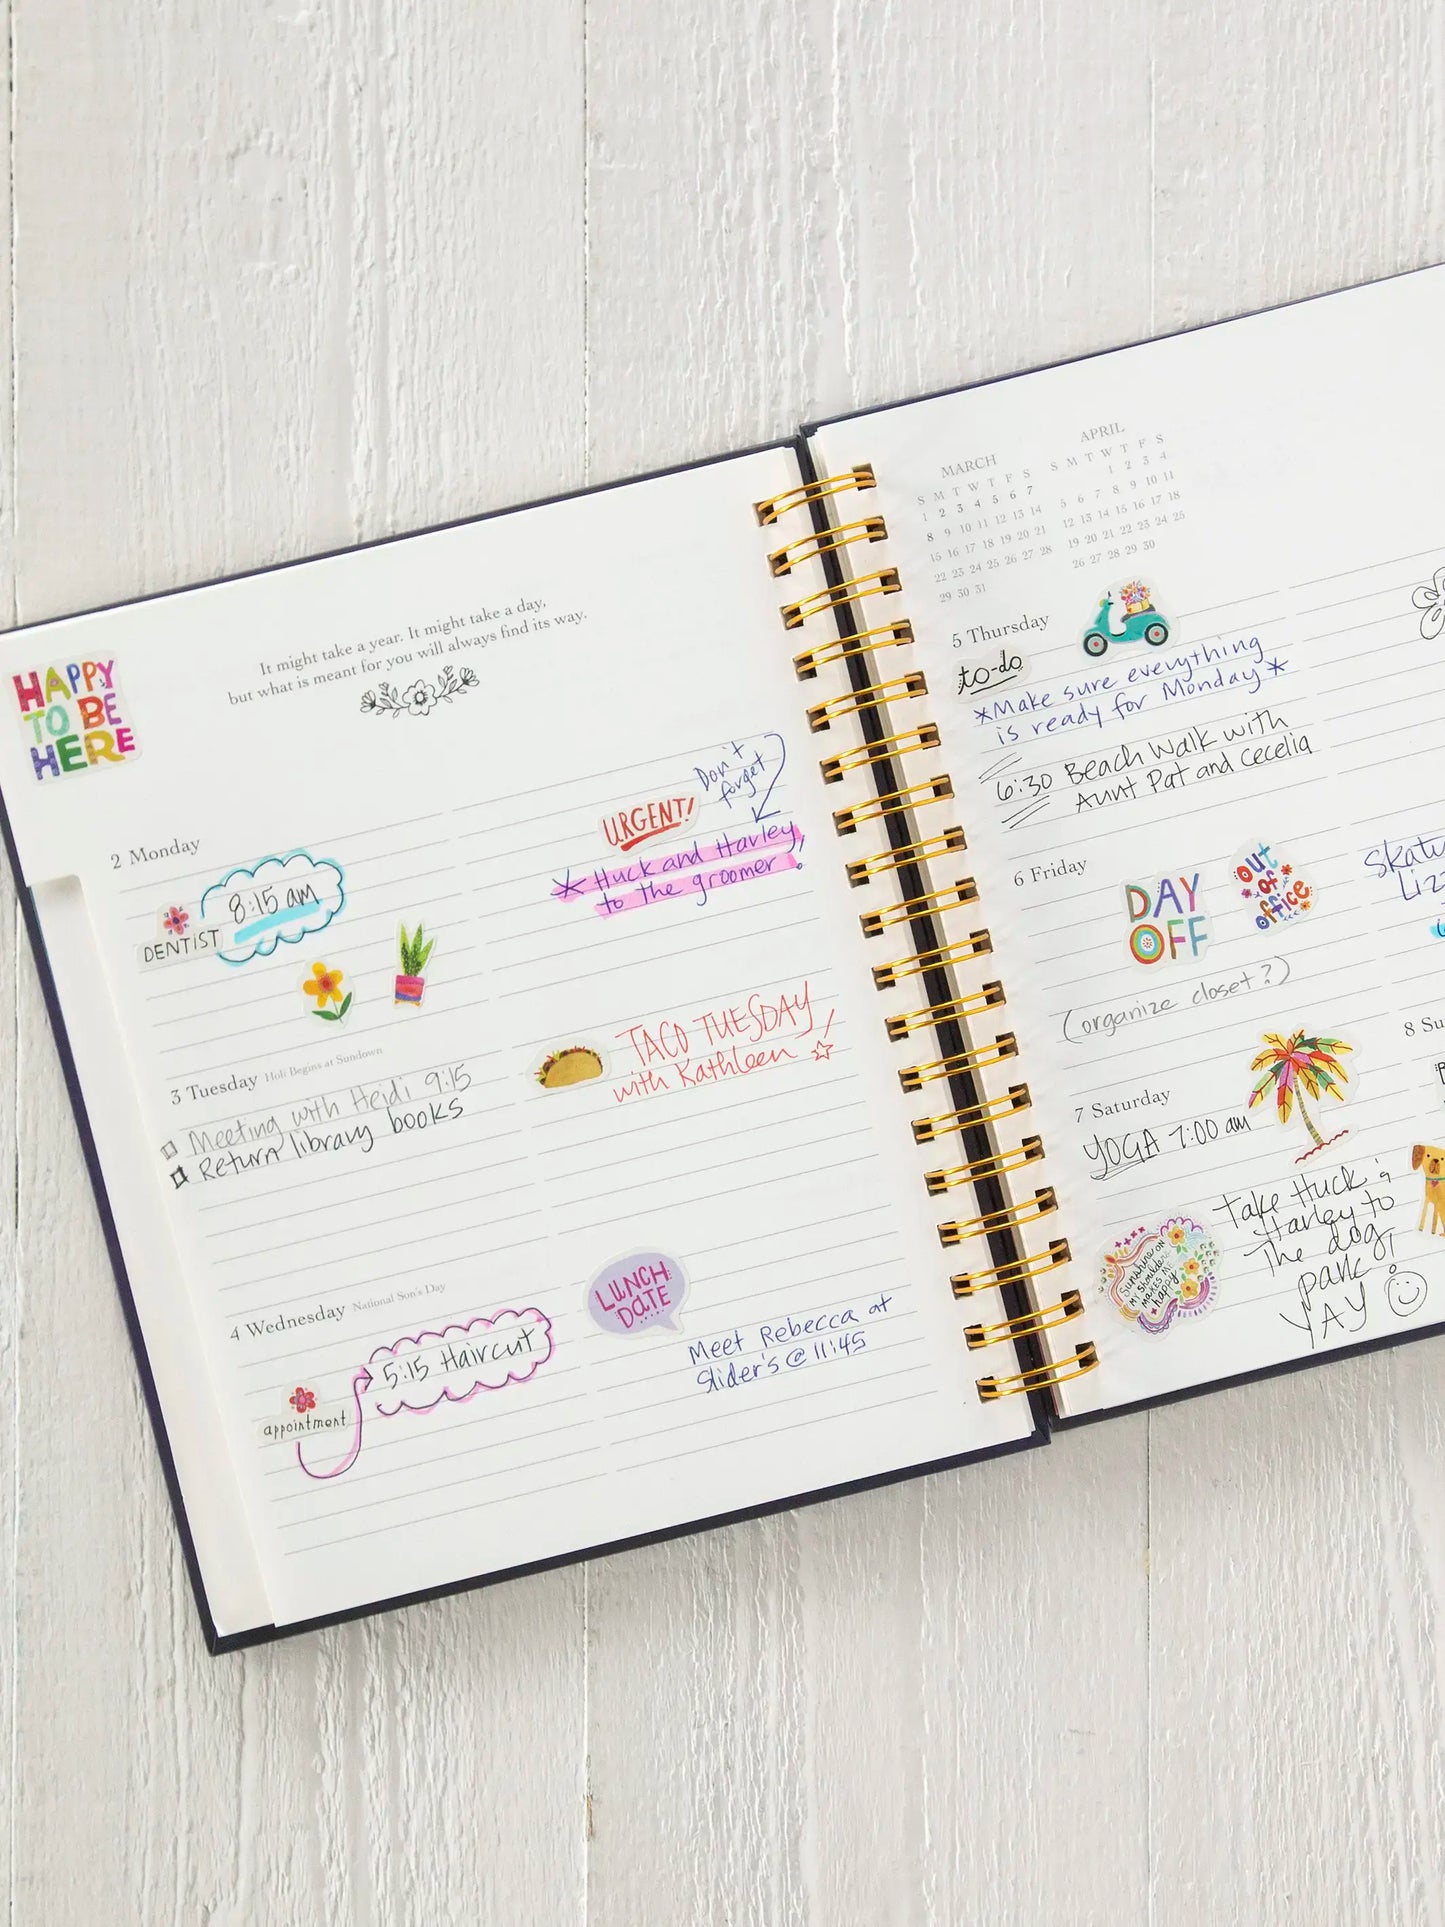 It might take a year. It might take a day,
but what is meant for you will always find its way.
HAPPY
TO BE
HERE
2 Monday
DENTIST
8:15 am
URGENT!
Don't
forget
*Huck and Harley,
to the groomer!
3 Tuesday Holi Begins at Sundown
Meeting with Heidi 9:15
Return library books
TACO TUESDAY
with Kathleen
4 Wednesday National Son's Day
appointment
5:15 Haircut
LUNCH
DATE
Meet Rebecca at
Slider's @ 11:45
MARCH
S M T W T F S
1 2 3 4 5 6 7
8 9 10 11 12 13 14
15 16 17 18 19 20 21
22 23 24 25 26 27 28
29 30 31
APRIL
S M T W T F S
1 2 3 4
5 6 7 8 9 10 11
12 13 14 15 16 17 18
19 20 21 22 23 24 25
26 27 28 29 30
5 Thursday
to-do
*Make sure everything
is ready for Monday*
6:30 Beach Walk with
Aunt Pat and Cecelia
6 Friday
DAY
OFF
out
of
office
(organize closet?)
7 Saturday
YOGA 7:00 am
Sunshine on
my shoulders
makes me
happy
Take Huck &
Harley to
The dog
park!
YAY
8